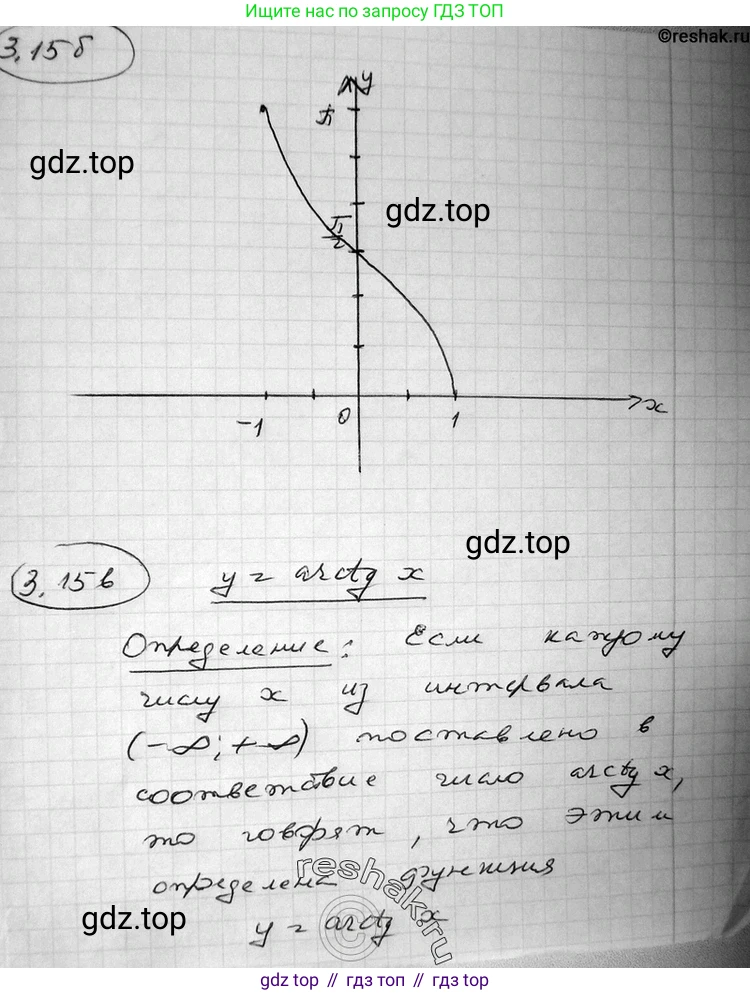 Ищите нас по запросу ГДЗ ТОП
©reshak.ru
3.15б
y
π
gdz.top
gdz.top
π/2
-1
0
1
x
gdz.top
3.15в
y = arctg x
Определение: Если каждому
числу x из интервала
(-∞; +∞) поставлено в
соответствие число arctg x,
то говорят, что этим
определена функция
reshak.ru
©
gdz.top
y = arctg x
gdz top // гдз топ // gdz top